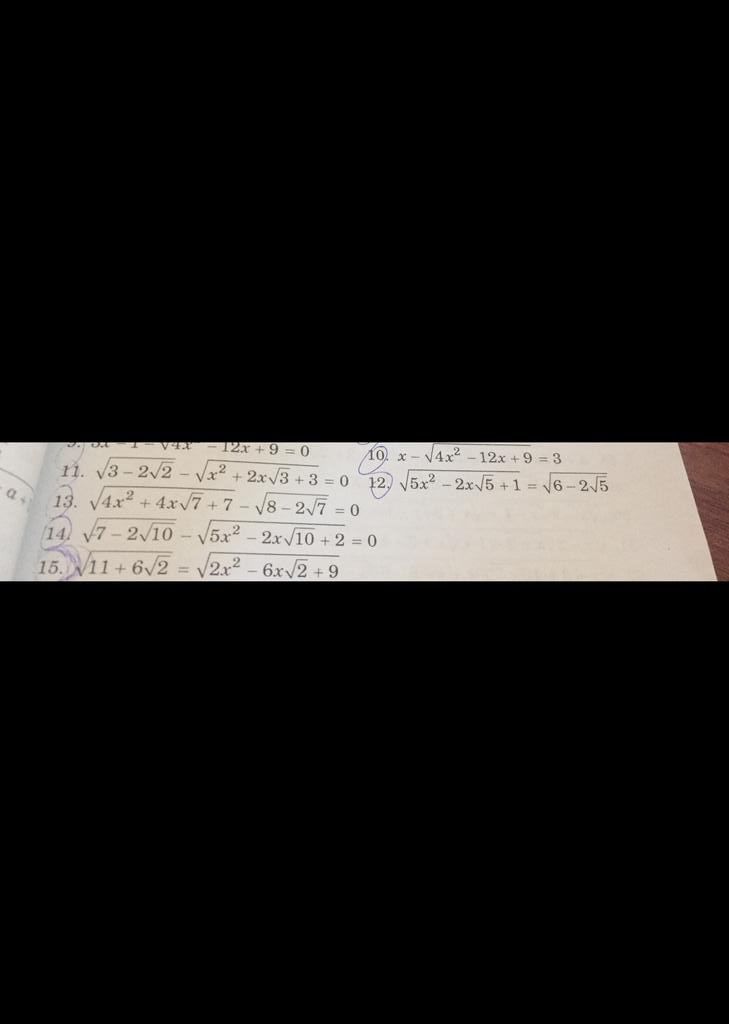 9. 3x − 1 − √(4x² − 12x + 9) = 0
10. x − √(4x² − 12x + 9) = 3
11. √(3 − 2√2) − √(x² + 2x√3 + 3) = 0
12. √(5x² − 2x√5 + 1) = √(6 − 2√5)
13. √(4x² + 4x√7 + 7) − √(8 − 2√7) = 0
14. √(7 − 2√10) − √(5x² − 2x√10 + 2) = 0
15. √(11 + 6√2) = √(2x² − 6x√2 + 9)